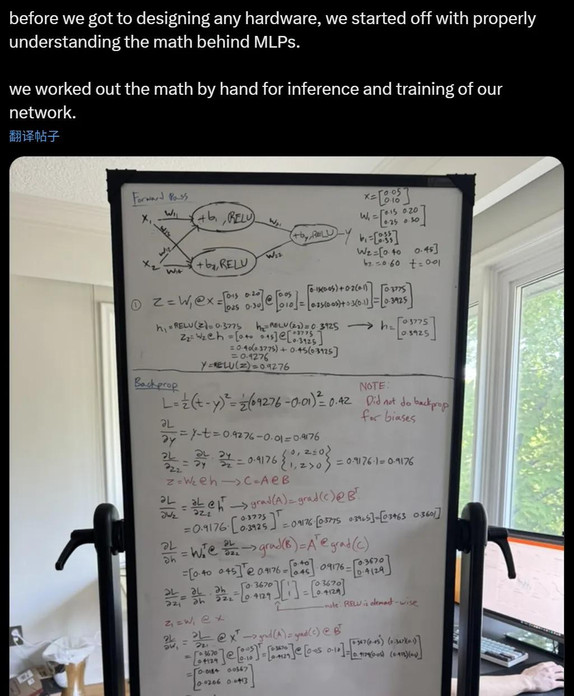 before we got to designing any hardware, we started off with properly
understanding the math behind MLPs.
we worked out the math by hand for inference and training of our
network.
翻译帖子
Forward Pass
X₁
W₁₁
+b₁, RELU
X₂
+b₂, RELU
+b₃, RELU
Y
X=[0.05 0.10]
W₁=[0.15 0.20 0.25 0.30]
W₂=[0.40 0.45]
b₂=0.60 t=0.01
① Z = W₁@x = [0.15 0.20 0.25 0.30] @ [0.05 0.10] = = [0.3775 0.3925]
h₁=RELU(Z₁)=0.3775 h₂=RELU(Z₂)=0.3925 → h=[0.3775 0.3925]
Z₂=W₂@h = [0.40 0.45]@[0.3775 0.3925]
=0.40(0.3775) + 0.45(0.3925)
=0.9276
Y=RELU(Z)=0.9276
Backprop
L=½(t-y)²=½(0.9276-0.01)²=0.42
NOTE:
Did not do backprop
for biases
∂L/∂y = y-t = 0.9276-0.01=0.9176
∂L/∂z₂ = ∂L/∂y · ∂y/∂z = 0.9176 {0, z≤0 1, z>0} = 0.9176·1=0.9176
z=W₂@h → C=A@B
∂L/∂W₂ = ∂L/∂z₂ @hᵀ → grad(A)=grad(C)@Bᵀ
=0.9176·[0.3775 0.3925]ᵀ=0.9176[0.3775 0.3925]=[0.3463 0.3601]
∂L/∂h = W₂ᵀ@ ∂L/∂z₂ → grad(B)=Aᵀ@grad(C)
=[0.40 0.45]ᵀ@ 0.9176=[0.40 0.45] 0.9176=[0.3670 0.4129]
∂L/∂z₁ = ∂L/∂h · ∂h/∂z₁ = [0.3670 0.4129][1 1] = [0.3670 0.4129]
RELU is element-wise
z₁=W₁ @ x
∂L/∂W₁ = ∂L/∂z₁ @ xᵀ → grad(A)=grad(C)@Bᵀ
=[0.3670 0.4129]@[0.05 0.10]ᵀ=[0.3670 0.4129]@[0.05 0.10]
=[0.0184 0.0367 0.0206 0.0413]